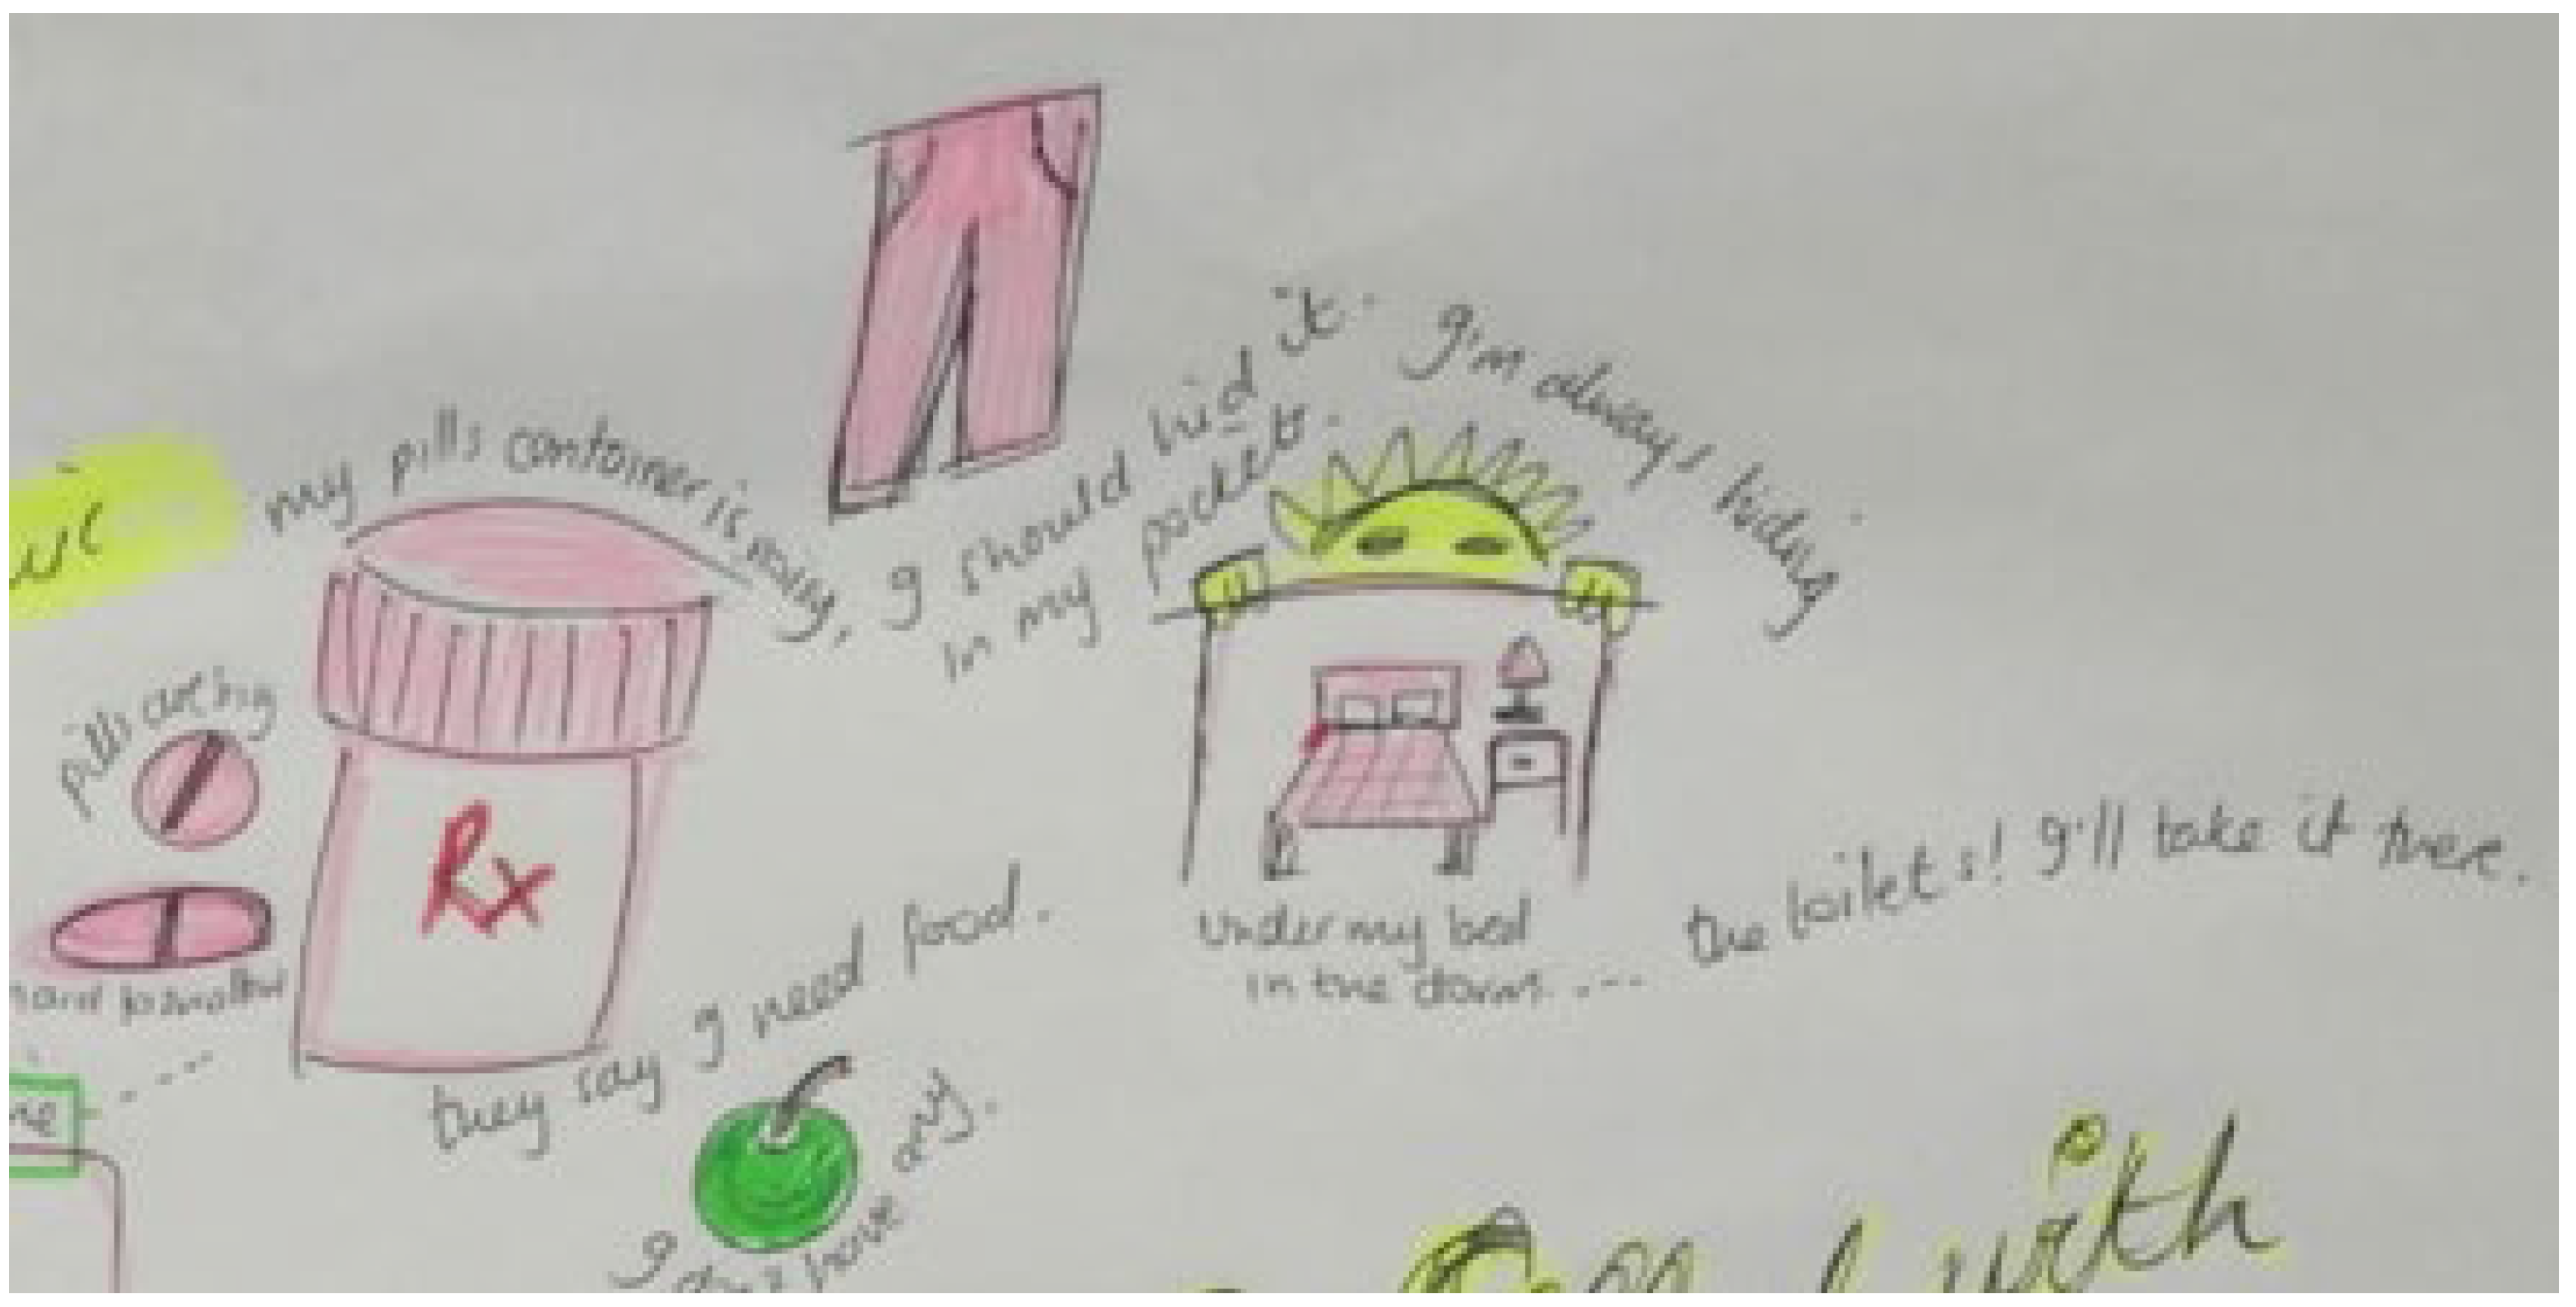 my pills container is noisy,
I should hid it.
in my pockets.
I'm always hiding
pills are big
Rx
hard to swallow
under my bed
in the dorm ....
the toilets! I'll take it there.
they say I need food.
I don't have any.
with